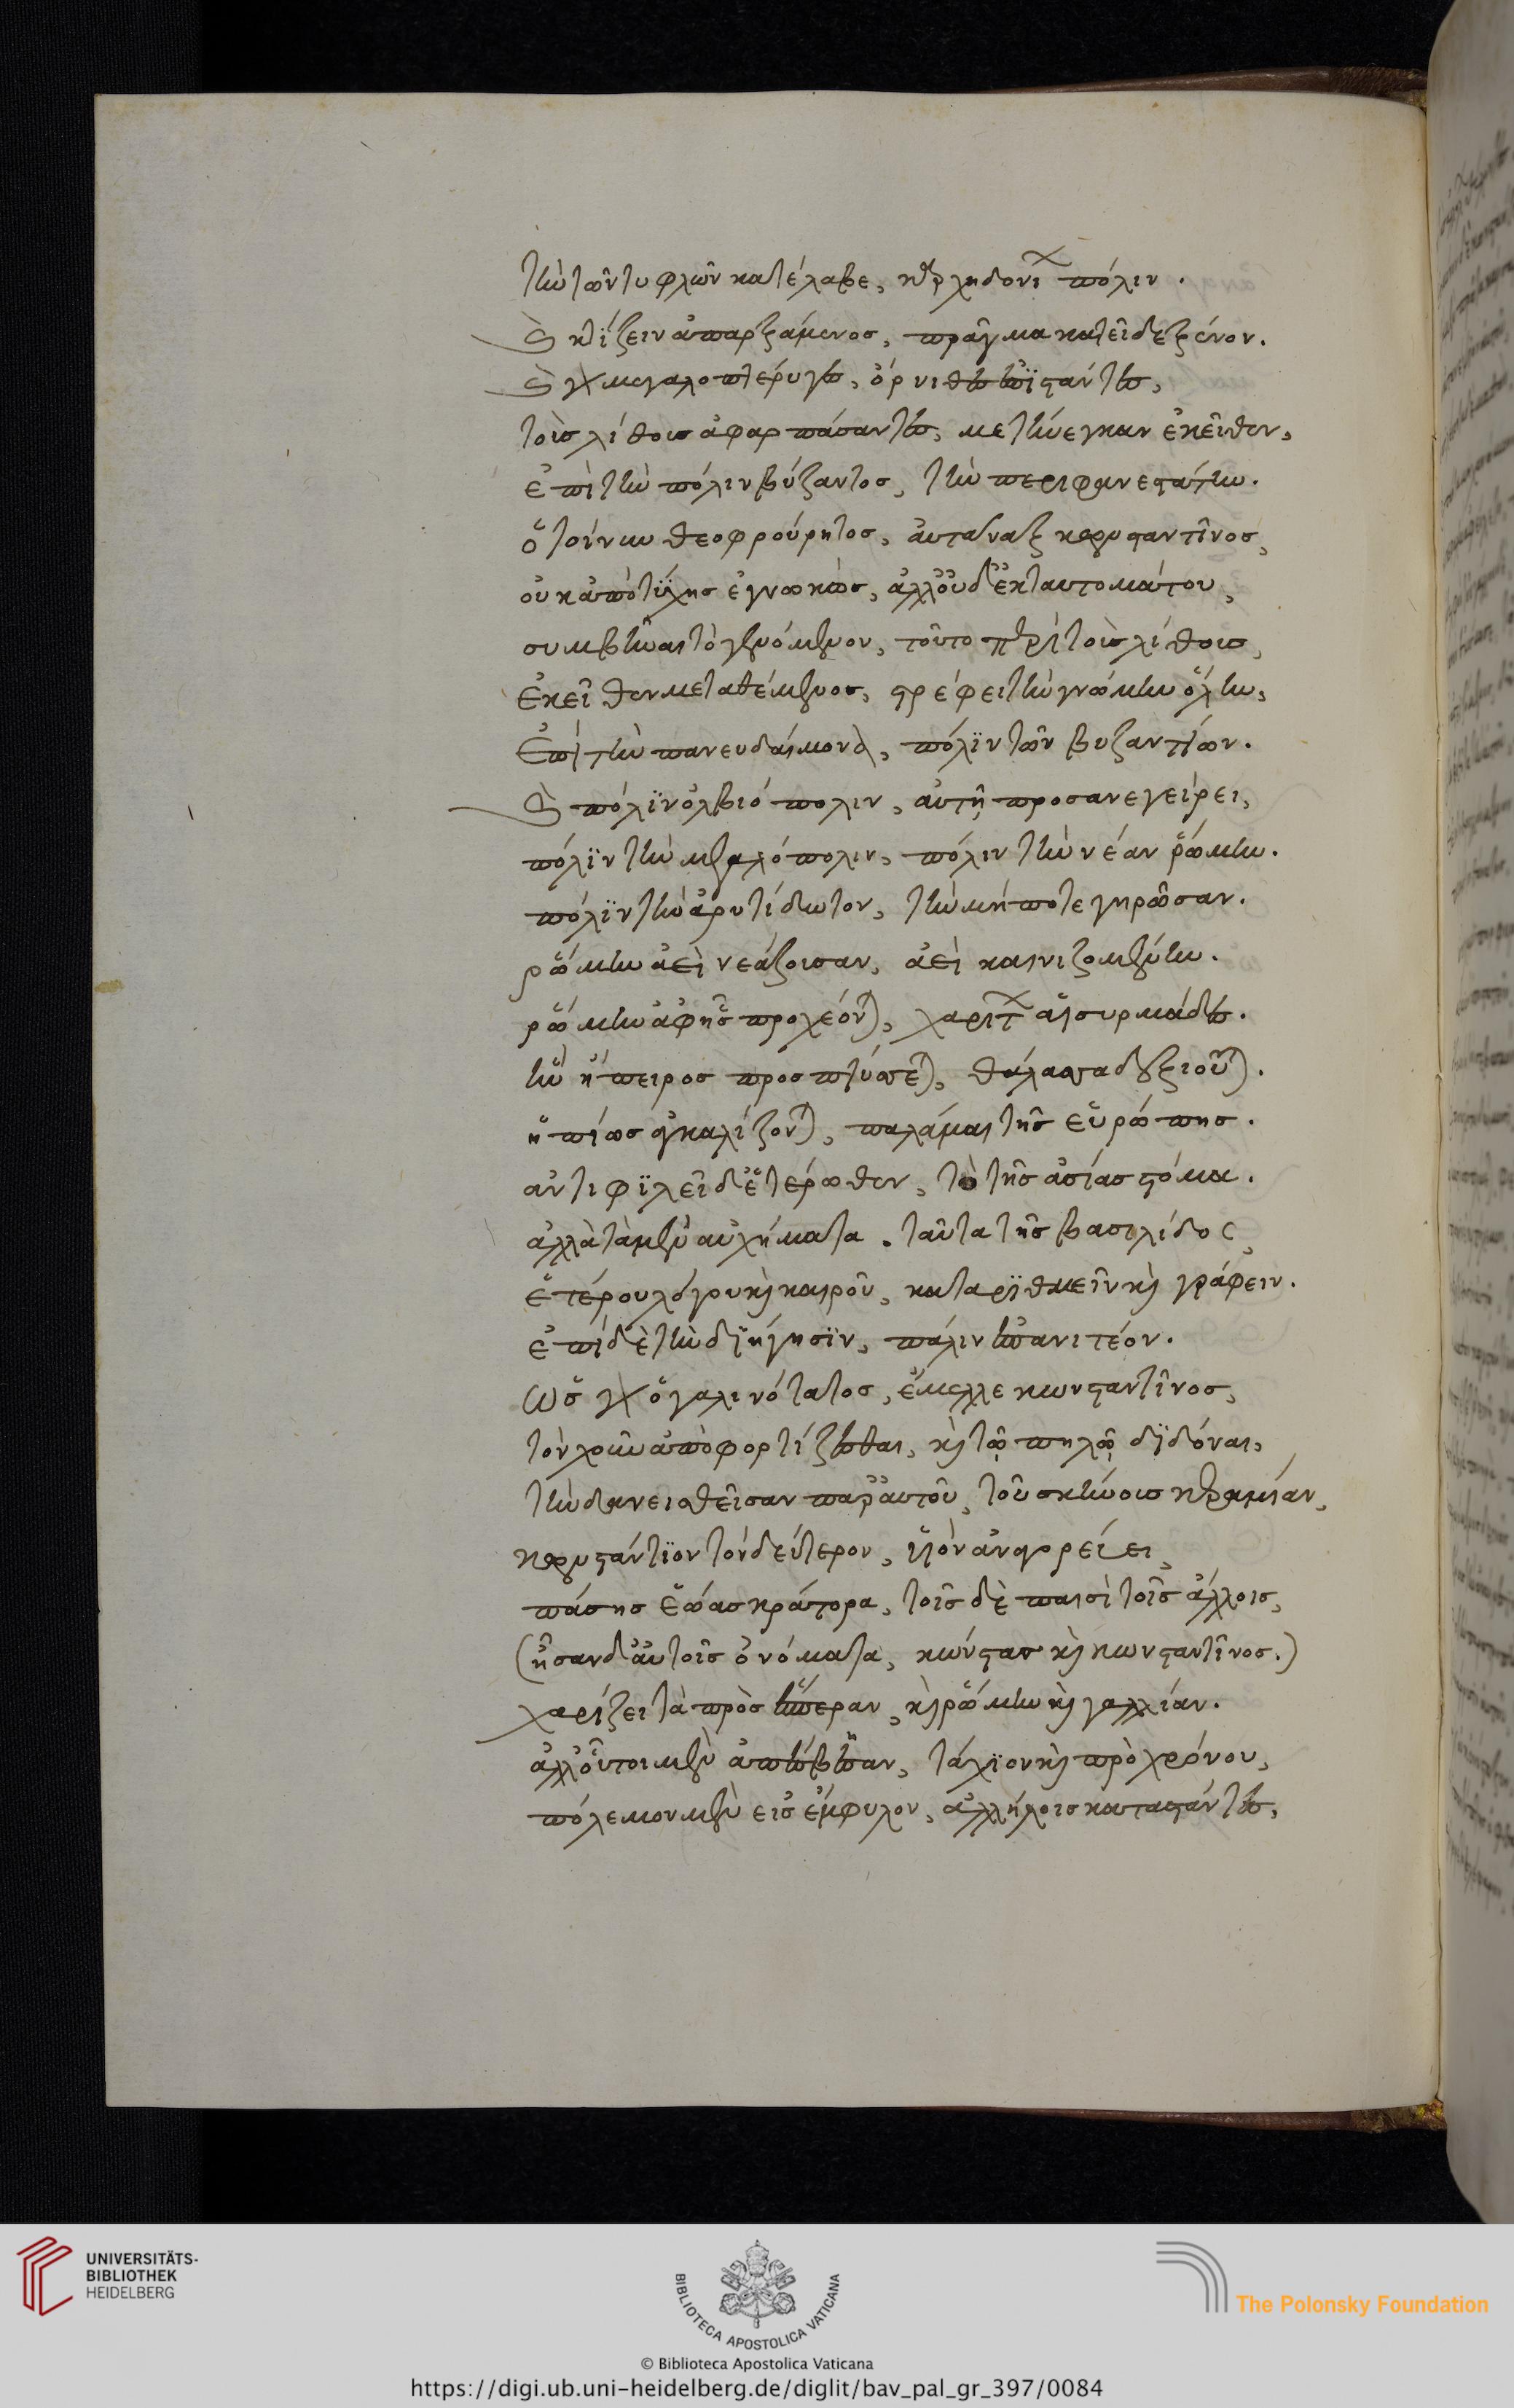 τὴν τῶν τυφλῶν κατέλαβε, καρχηδονίων πόλιν.
καὶ κτΐζειν ἀπαρξάμενος, πρᾶγμα κατεῖδε ξένον.
καὶ γὰρ μεγαλοπτέρυγες, ὄρνιθες ἐπϊστάντες,
τοὺς λίθους ἀφαρπάσαντες, μετήνεγκαν ἐκεῖθεν,
ἐπὶ τὴν πόλιν βύζαντος, τὴν περιφανεστάτην.
ὁ τοίνυν θεοφρούρητος, ἄναξ κωνσταντῖνος,
οὐκ ἀπὸ τύχης ἐγνωκὼς, ἀλλ' οὐδ' ἐκ ταυτομάτου,
συμβῆναι τὸ γενόμενον, τοῦτο περὶ τοὺς λίθους,
ἐκεῖθεν μεταθέμενος, στρέφει τὴν γνώμην ὅλην,
ἐπὶ τὴν πανευδαίμονα, πόλϊν τῶν βυζαντίων.
καὶ πόλϊν ὀλβιόπολιν, αὐτῇ προσανεγείρει,
πόλϊν τὴν μεγαλόπολιν, πόλιν τὴν νέαν ῥώμην.
πόλϊν τὴν ἀρυτίδωτον, τὴν μήποτε γηρῶσαν.
ῥώμην ἀεὶ νεάζουσαν, ἀεὶ καινιζομένην.
ῥώμην ἀφ' ἧς προχέονται, χαρίτων αἱ συρμάδες.
ἣν ἤπειρος προσπτύσσεται, θάλασσα δεξιοῦται.
ἠπίως ἀγκαλίζονται, παλάμαι τῆς εὐρώπης.
ἀντιφϊλεῖ δ' ἑτέρωθεν, τὸ τῆς ἀσίας στόμα.
ἀλλὰ τὰ μὲν αὐχήματα. ταῦτα τῆς βασιλίδος,
ἑτέρου λόγου καὶ καιροῦ, καταρϊθμεῖν καὶ γράφειν.
ἐπὶ δὲ τὴν δϊήγησϊν, πάλιν ἐπανιτέον.
ὡς γὰρ ὁ γαληνότατος, ἔμελλε κωνσταντῖνος,
τὸν χοῦν ἀποφορτίζεσθαι, καὶ τῷ πηλῷ δϊδόναι,
τὴν δανεισθεῖσαν παρ' αὐτοῦ, τοῦ σκήνους κεραμίαν,
κωνστάντϊον τὸν δεύτερον, υἱὸν ἀναγορεύει,
πάσης ἑῴας κράτορα, τοῖς δὲ παισὶ τοῖς ἄλλοις,
(ἦσαν δ' αὐτοῖς ὀνόματα, κώνστας καὶ κωνσταντῖνος.)
χαρίζει τὰ πρὸς ἑσπέραν, καὶ ῥώμην καὶ γαλλίαν.
ἀλλ' οὗτοι μὲν ἀπέσβησαν, τάχϊον καὶ πρὸ χρόνου,
πόλεμον μὲν εἰς ἔμφυλον, ἀλλήλοις καταστάντες,
UNIVERSITÄTS-
BIBLIOTHEK
HEIDELBERG
BIBLIOTECA APOSTOLICA VATICANA
The Polonsky Foundation
© Biblioteca Apostolica Vaticana
https://digi.ub.uni-heidelberg.de/diglit/bav_pal_gr_397/0084